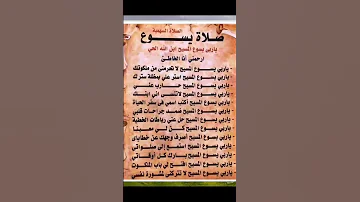 الصلاة السهمية
صلاة يسوع
ياربي يسوع المسيح ابن الله الحي
ارحمني أنا الخاطئ
- ياربي يسوع المسيح لا تحرمني من ملكوتك
- ياربي يسوع المسيح استر علي بمظلة سترك
- ياربي يسوع المسيح حارب عني
- ياربي يسوع المسيح لاتنسى اني ابنك
- ياربي يسوع المسيح اكتب اسمي في سفر الحياة
- ياربي يسوع المسيح ضمد جراحات قلبي
- ياربي يسوع المسيح حل عني رباطات الخطية
- ياربي يسوع المسيح كن لي معينا
- ياربي يسوع المسيح اصرف وجهك عن خطاياي
- ياربي يسوع المسيح استمع إلى صلواتي
- ياربي يسوع المسيح بارك كل أوقاتي
- ياربي يسوع المسيح افتح لي باب الملكوت
- ياربي يسوع المسيح لا تتركني لمشورة نفسي